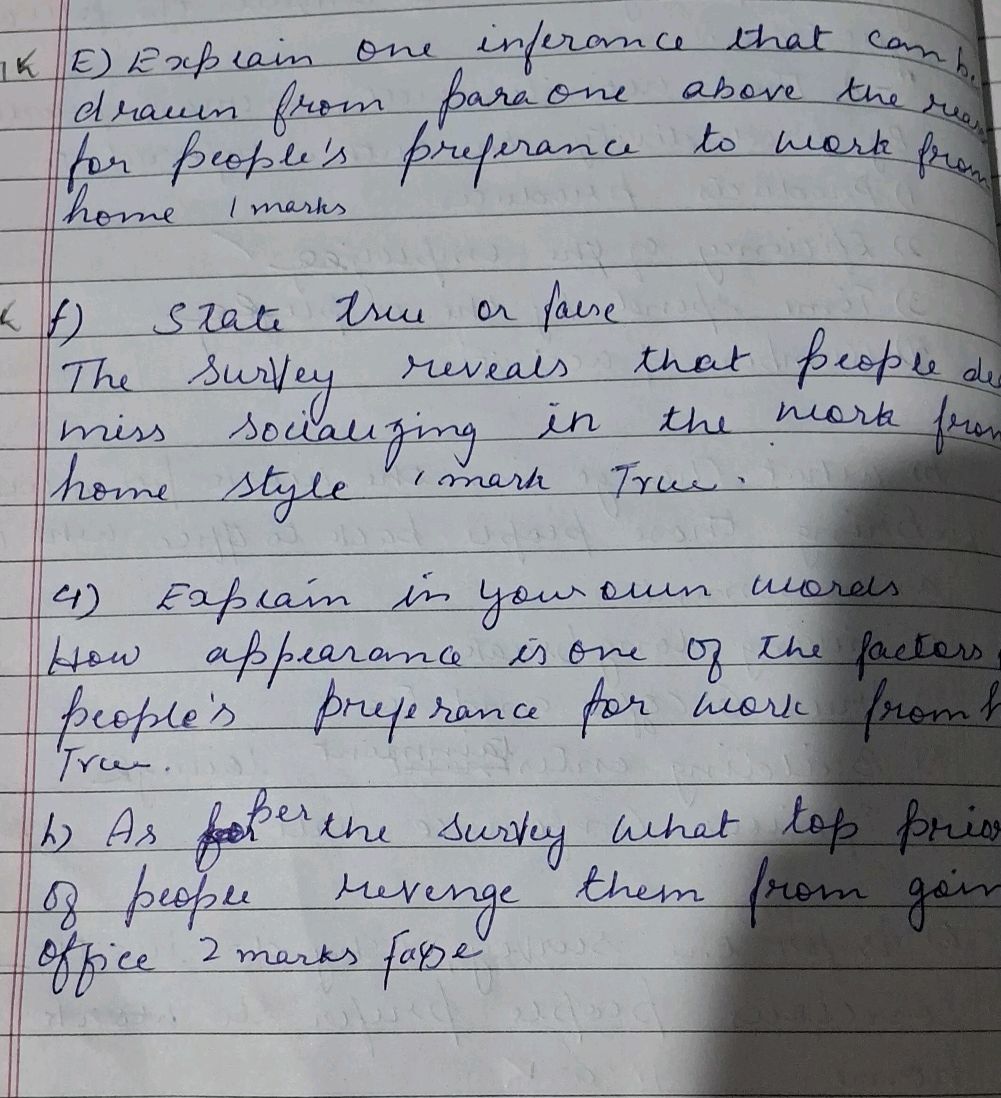 1K E) Explain one inferance that can b
drawn from para one above the reas
for people's preferance to work from
home 1 marks
K f) State true or false
The survey reveals that people do
miss socializing in the work from
home style 1 mark True.
G) Explain in your own words
How appearance is one of the factors
people's preferance for work from h
True.
h) As per the survey what top prior
of people revenge them from goin
office 2 marks false